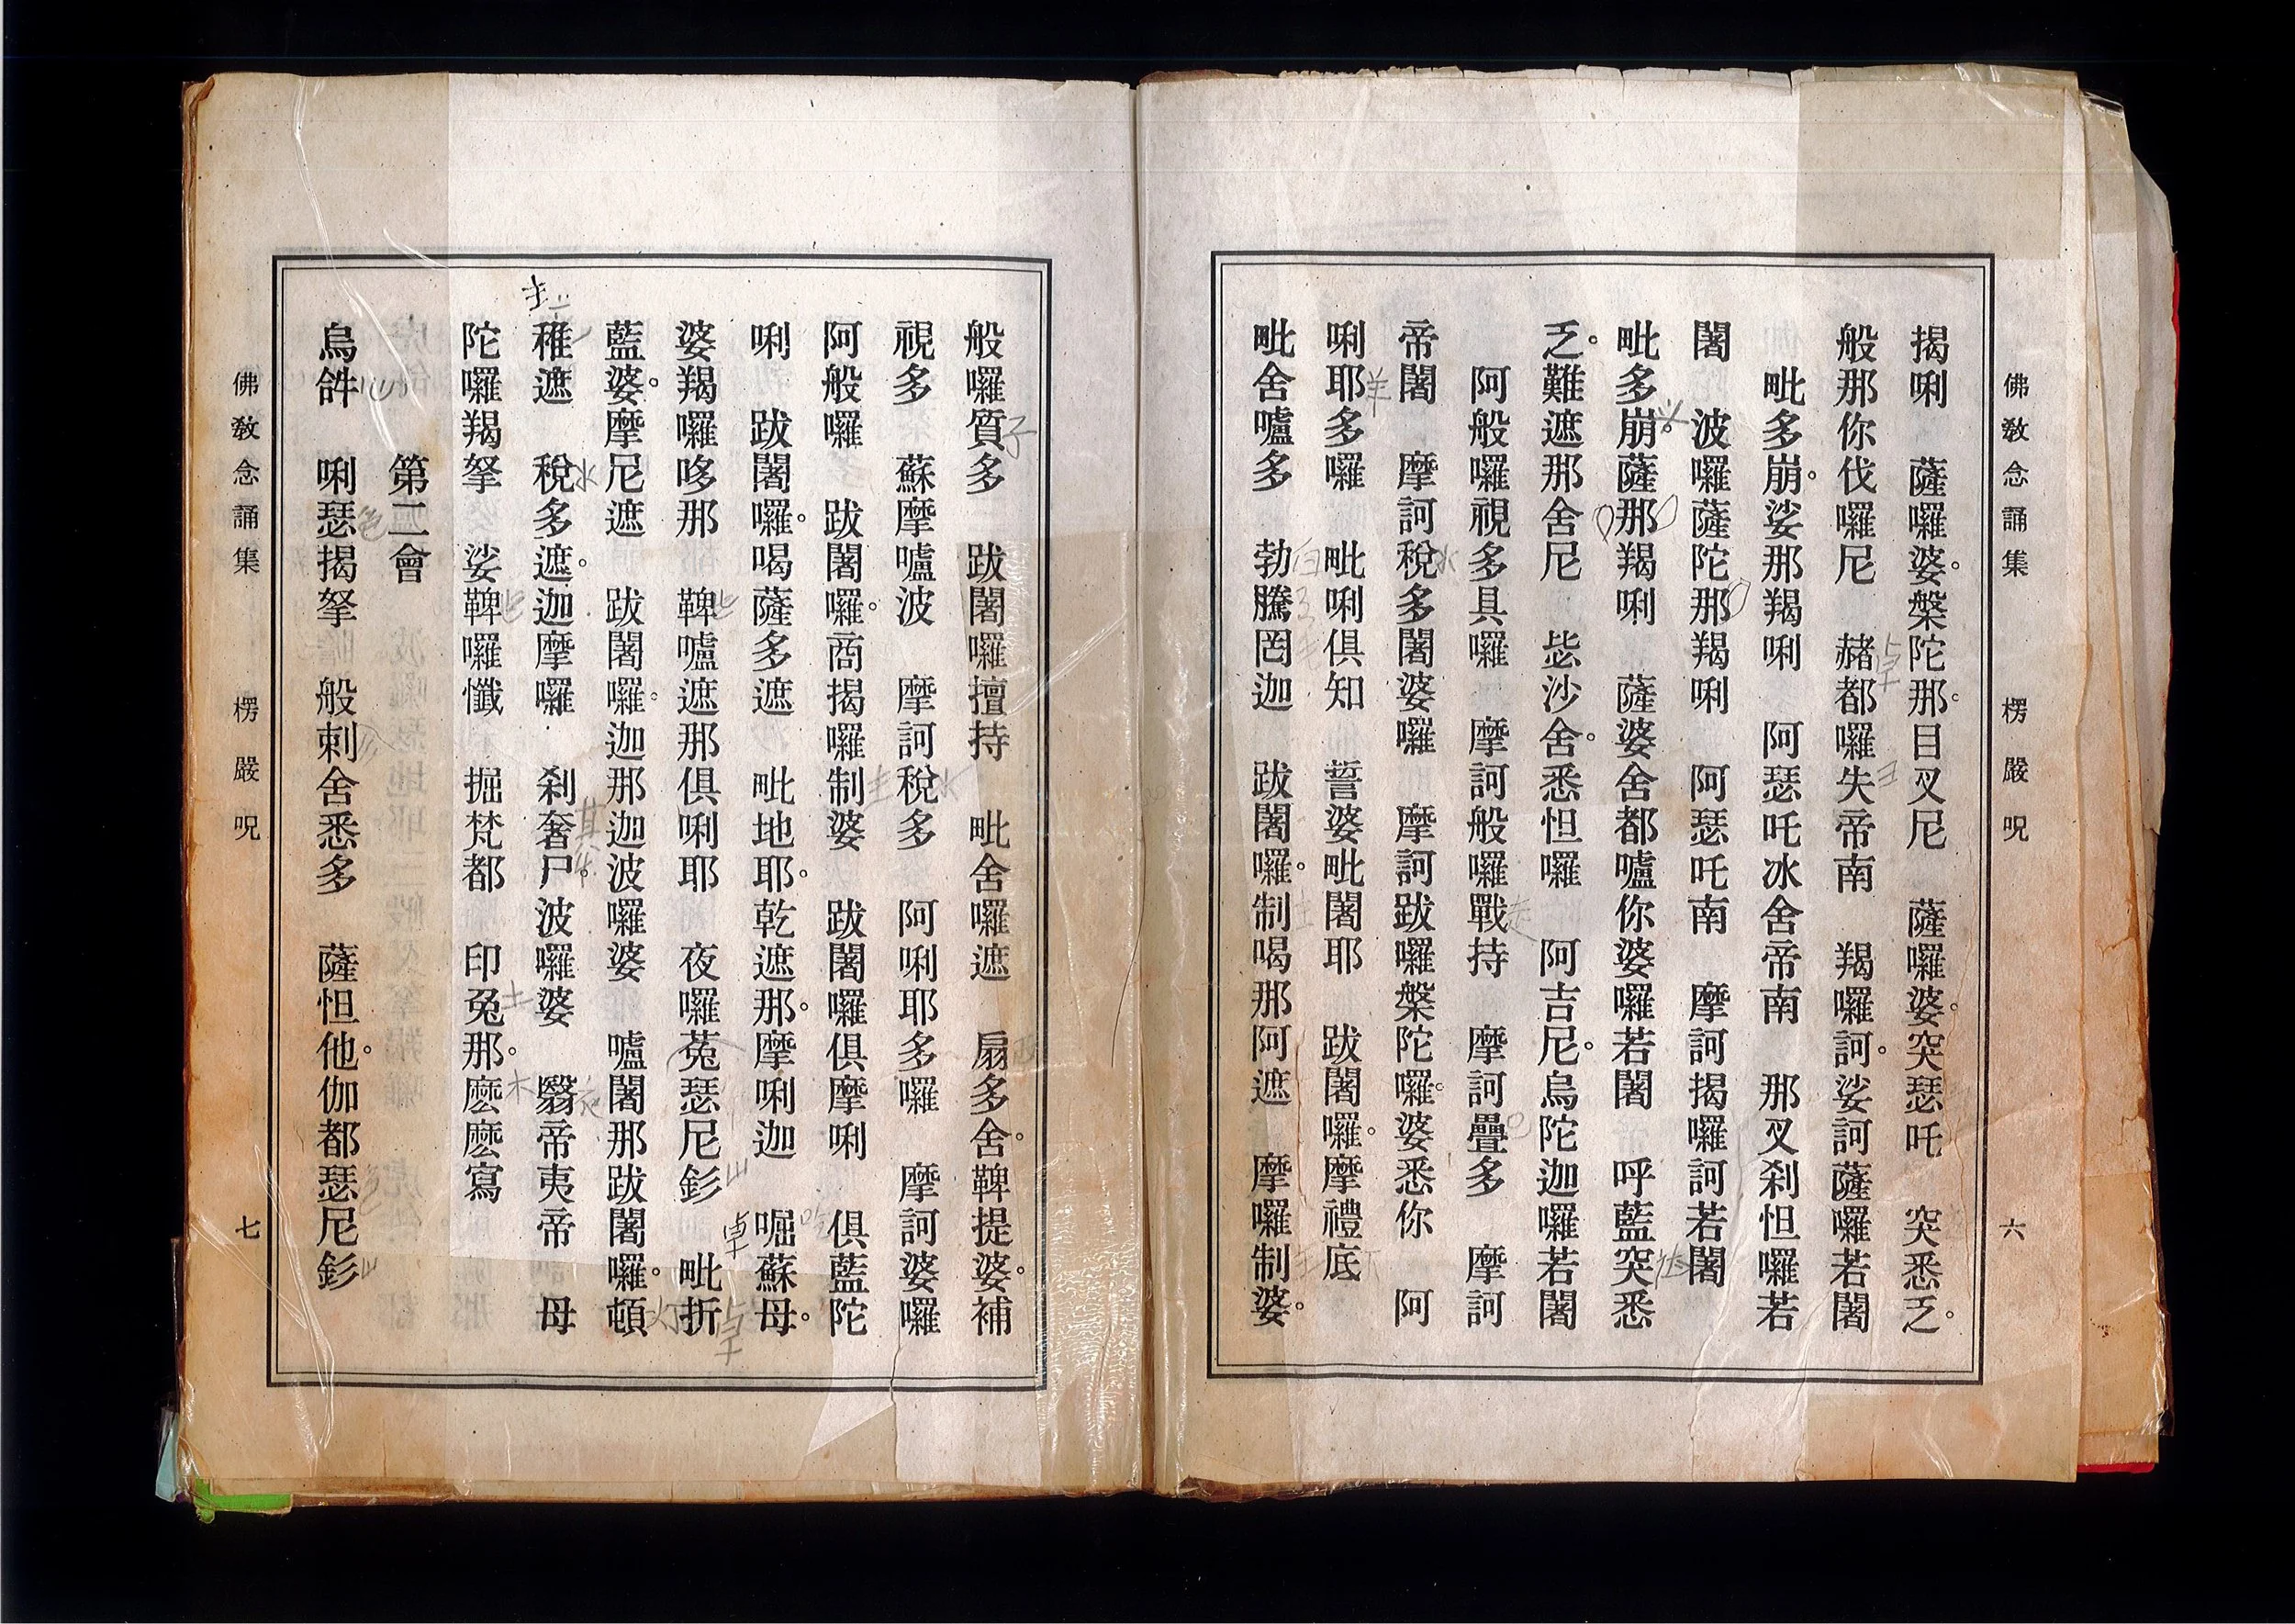 佛教念誦集 楞嚴呪 六
揭唎 薩囉婆。槃陀那。目叉尼 薩囉婆。突瑟吒 突悉乏。
般那你伐囉尼 赭都囉失帝南 羯囉訶。娑訶薩囉若闍
毗多崩。娑那羯唎 阿瑟吒冰舍帝南 那叉刹怛囉若
闍 波囉薩陀那羯唎 阿瑟吒南 摩訶揭囉訶若闍
毗多崩。薩那羯唎 薩婆舍都嚧你婆囉若闍 呼藍突悉
乏。難遮那舍尼 毖沙舍。悉怛囉 阿吉尼。烏陀迦囉若闍
阿般囉視多具囉 摩訶般囉戰持 摩訶疊多 摩訶
帝闍 摩訶稅多闍婆囉 摩訶跋囉槃陀囉。婆悉你 阿
唎耶多囉 毗唎俱知 誓婆毗闍耶 跋闍囉。摩禮底
毗舍嚧多 勃騰罔迦 跋闍囉。制喝那阿遮 摩囉制婆。
般囉質多 跋闍囉擅持 毗舍囉遮 扇多舍。鞞提婆。補
視多 蘇摩嚧波 摩訶稅多 阿唎耶多囉 摩訶婆囉
阿般囉 跋闍囉。商揭囉制婆 跋闍囉俱摩唎 俱藍陀
唎 跋闍囉。喝薩多遮 毗地耶。乾遮那。摩唎迦 啒蘇母。
婆羯囉哆那 鞞嚧遮那俱唎耶 夜囉菟瑟尼釤 毗折
藍婆。摩尼遮 跋闍囉。迦那迦波囉婆 嚧闍那跋闍囉。頓
稚遮 稅多遮。迦摩囉 刹奢尸。波囉婆 翳帝夷帝 母
陀囉羯拏 娑鞞囉懺 掘梵都 印兔那。麽麽寫
第二會
烏𤙖 唎瑟揭拏 般剌舍悉多 薩怛他。伽都瑟尼釤
佛教念誦集 楞嚴呪 七